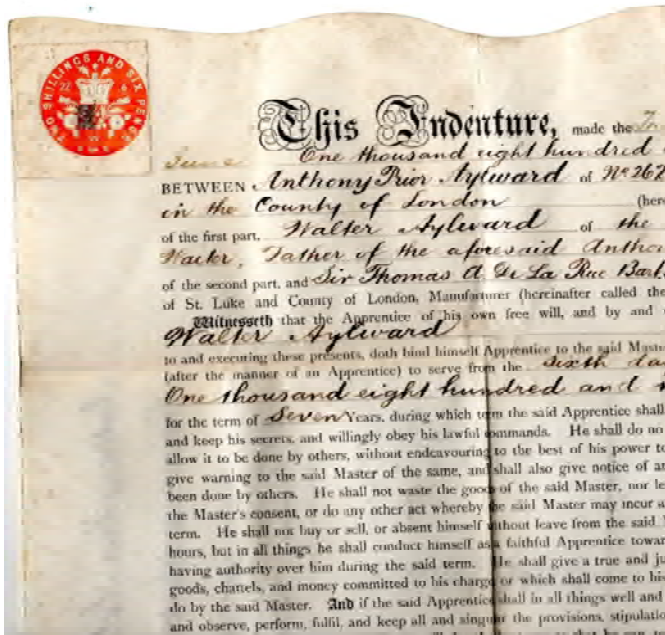 TWO SHILLINGS AND SIX PENCE
This Indenture, made the
June One thousand eight hundred
BETWEEN Anthony Prior Aylward of No 262
in the County of London (here
of the first part, Walter Aylward of the
Father of the aforesaid Antho
of the second part, and Sir Thomas A. De La Rue Bart
of St. Luke and County of London, Manufacturer (hereinafter called the
Witnesseth that the Apprentice of his own free will, and by and
Walter Aylward
to and executing these presents, doth bind himself Apprentice to the said Maste
(after the manner of an Apprentice) to serve from the sixth da
One thousand eight hundred and
for the term of Seven Years, during which term the said Apprentice shall
and keep his secrets, and willingly obey his lawful commands. He shall do no
allow it to be done by others, without endeavouring to the best of his power to
give warning to the said Master of the same, and shall also give notice of a
been done by others. He shall not waste the goods of the said Master, nor le
the Master's consent, or do any other act whereby the said Master may incur a
term. He shall not buy or sell, or absent himself without leave from the said
hours, but in all things he shall conduct himself as a faithful Apprentice towar
having authority over him during the said term. He shall give a true and ju
goods, chattels, and money committed to his charge or which shall come to his
do by the said Master. And if the said Apprentice shall in all things well and
and observe, perform, fulfil, and keep all and singular the provisions, stipulatio